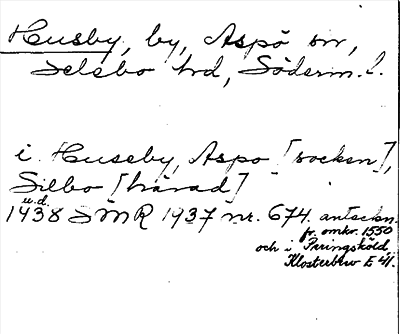 Husby, by, Aspö sn,
Selebo hd, Söderm. l.
i Huseby, Aspo [socken],
Silbo [härad]
u.d.
1438 SMR 1937 nr. 674. anteckn.
fr. omkr. 1550
och i Peringskiöld
Klosterbrev E 41.